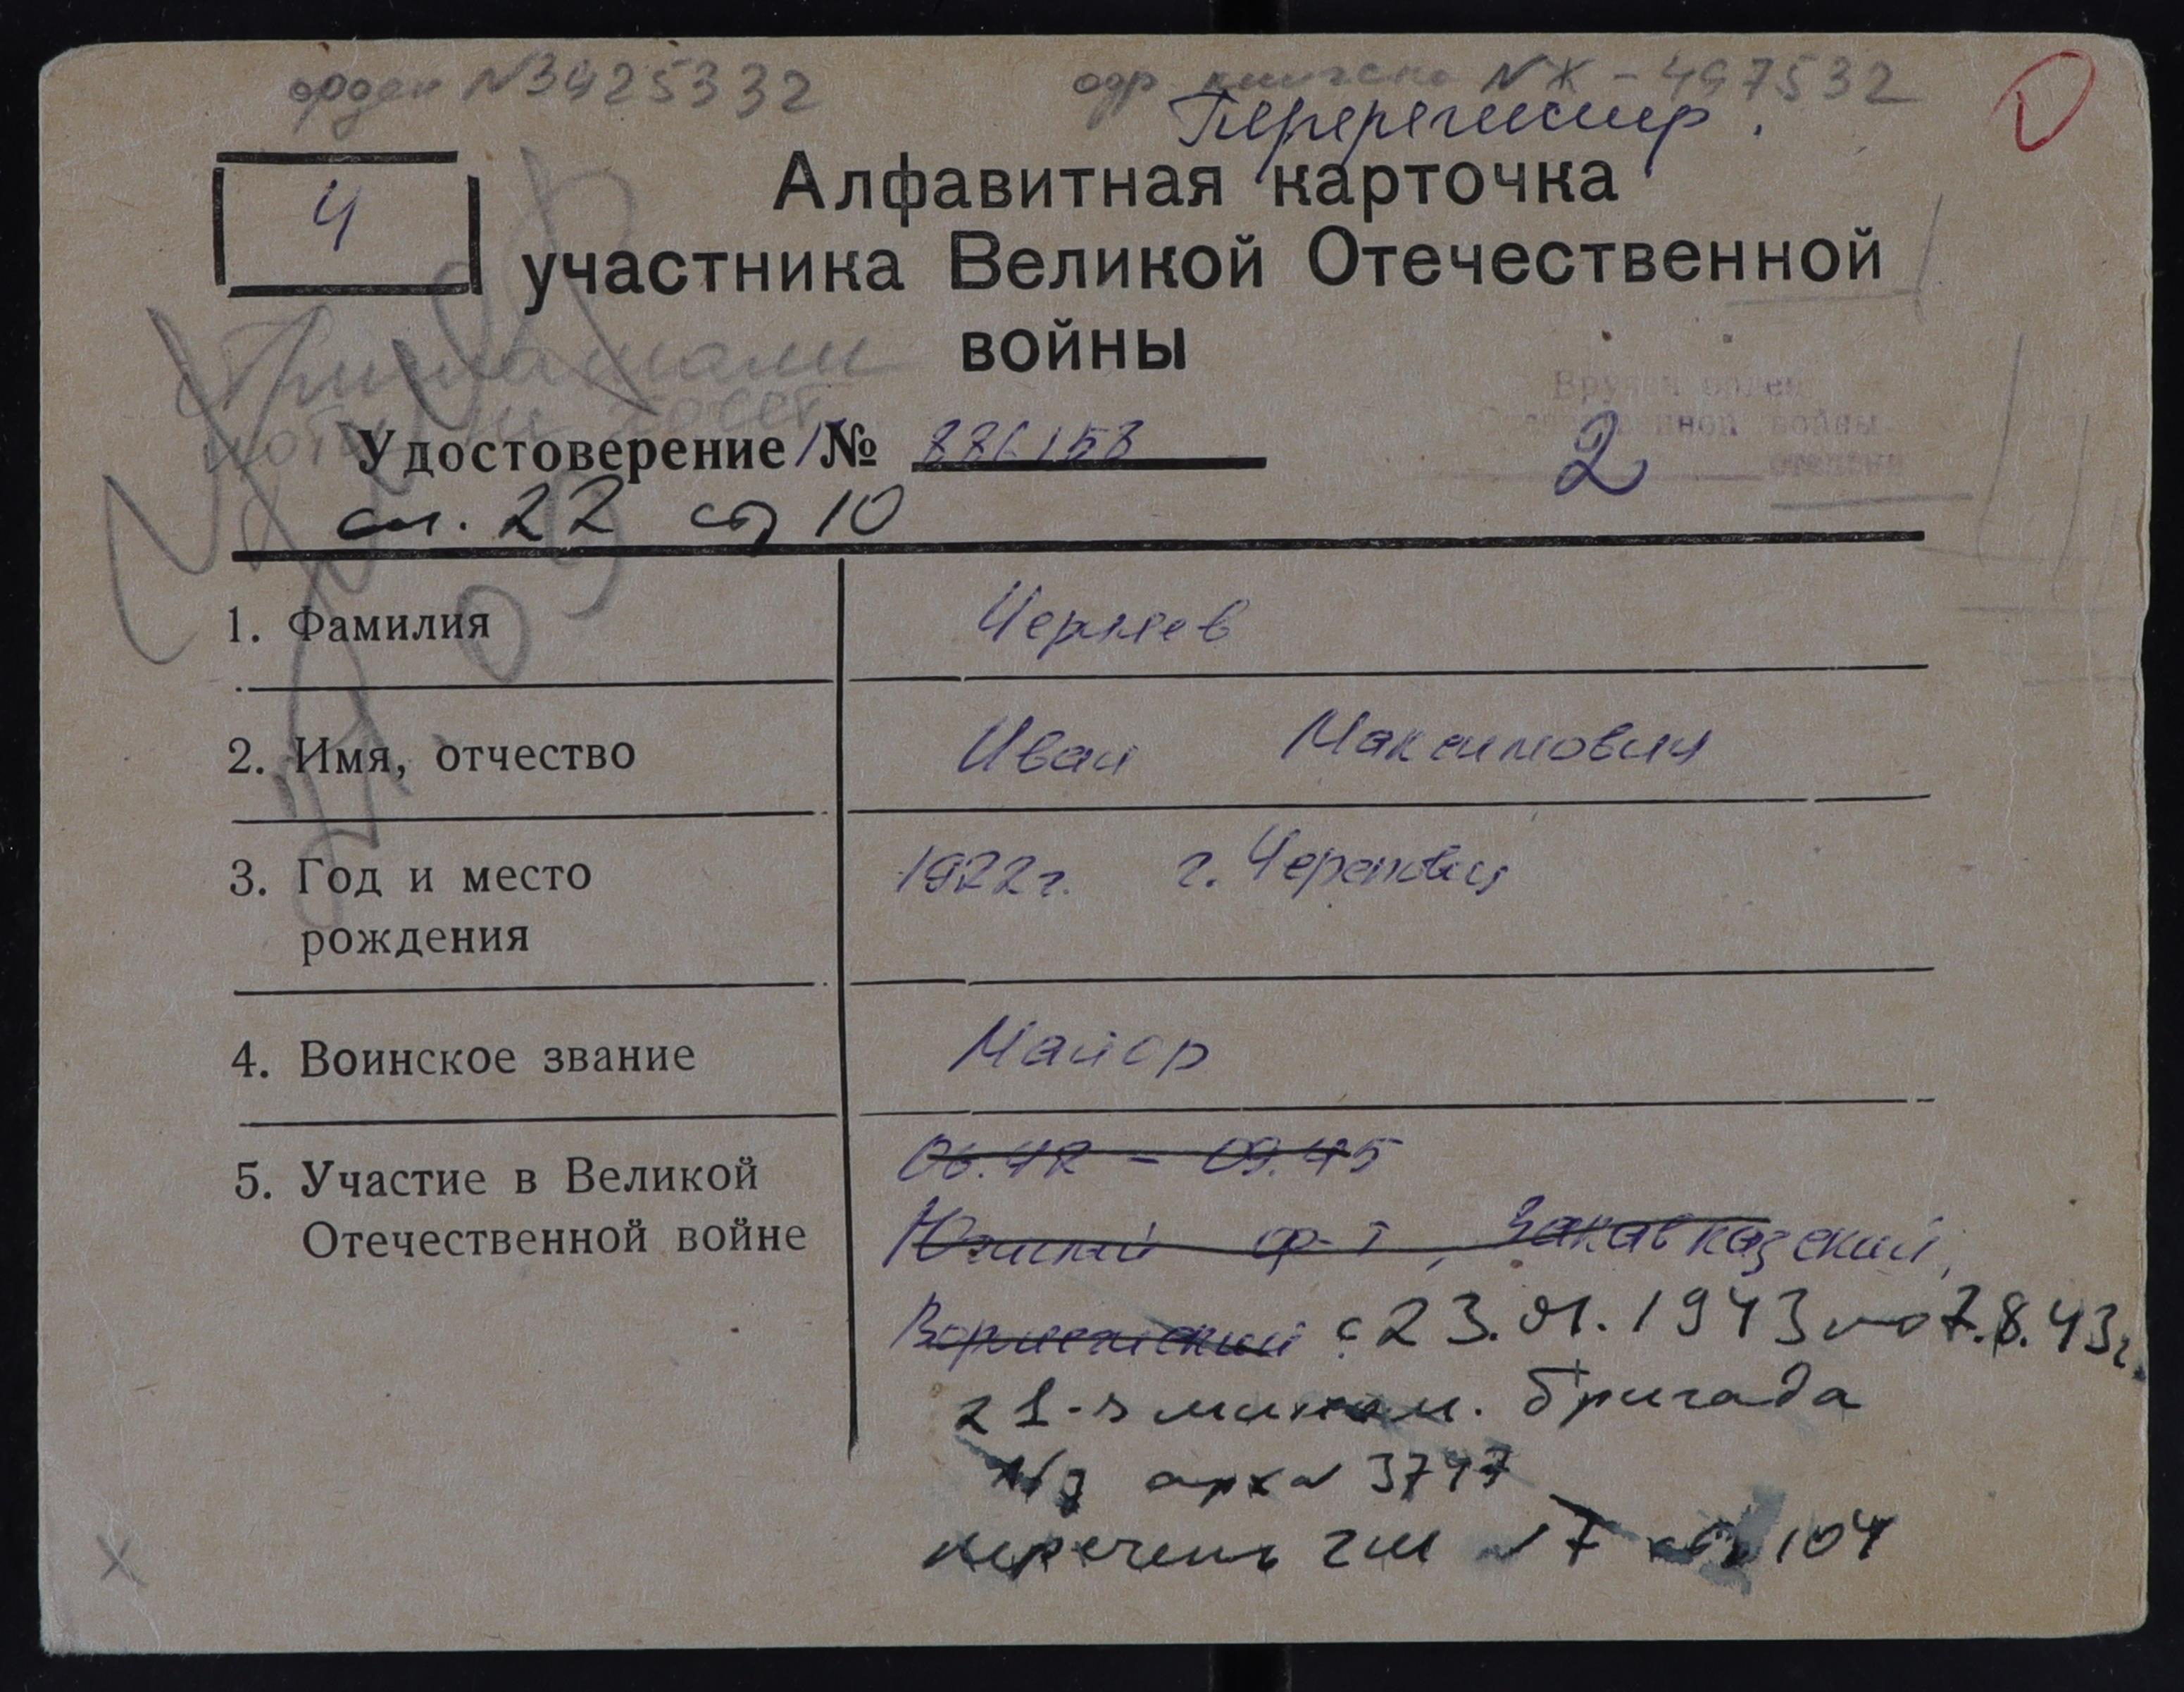 орден №3425332 орд книжка № Ж - 497532
Перерегистр.
Ч
Алфавитная карточка
участника Великой Отечественной
войны
Вручен орден
Отечественной войны
2 степени
Удостоверение №
сп. 22 стр 10
1. Фамилия Черняев
2. Имя, отчество Иван Максимович
3. Год и место 1922г. г. Череповец
рождения
4. Воинское звание Майор
5. Участие в Великой 06.42 - 09.45
Отечественной войне Южный ф-т, Закавказский,
с 23.01.1943 по 7.8.43г.
21-я бригада
арх № 3747
перечень ГШ № 7 стр 104